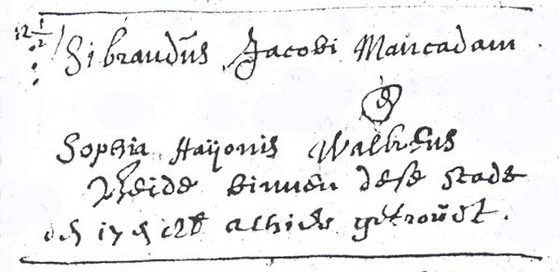 12 1/2
Sibrandus Jacobi Mancadam
&
Sophia Hayonis Walricus
Beide binnen dese stadt
den 17 alhier getrout.